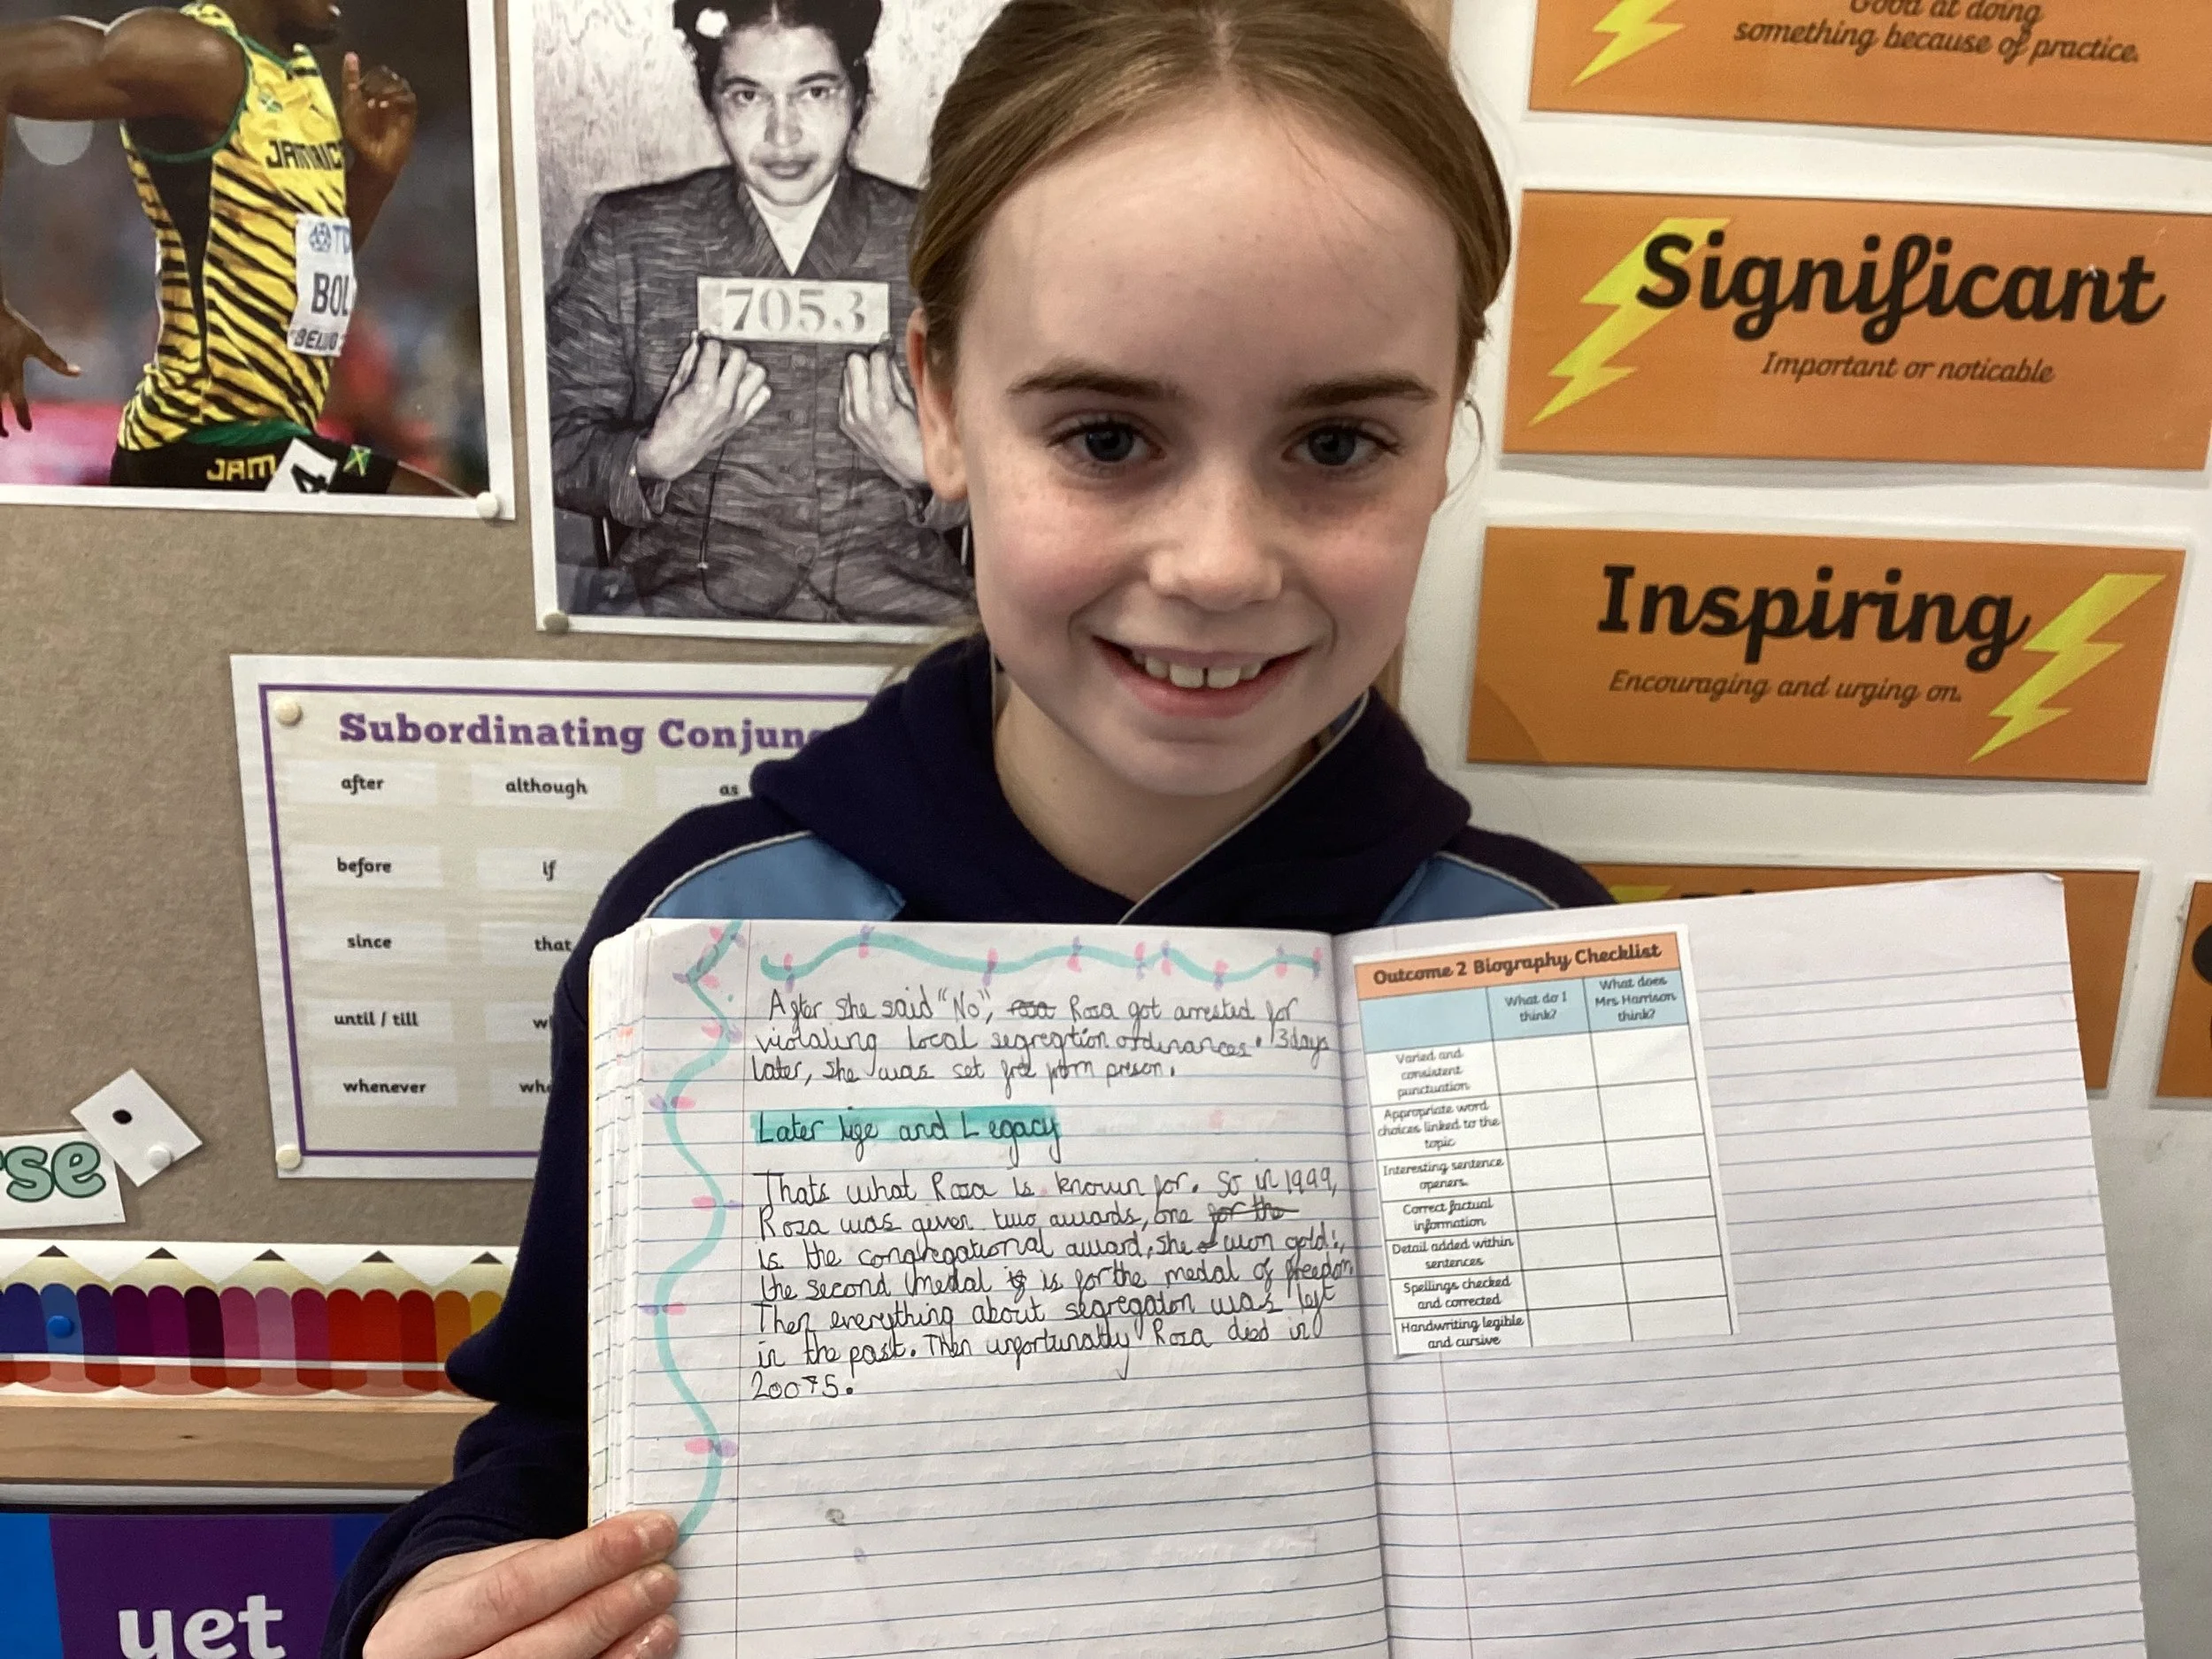 Good at doing
something because of practice.
JAMAIC
BOL
BEIJ
JAM
4
7053
Significant
Important or noticable
Inspiring
Encouraging and urging on.
Subordinating Conjun
after although as
before if
since that
until / till w
whenever whe
se
yet
After she said "No", rosa Rosa got arrested for
violating local segregtion ordinances. 3 days
later, she was set free from preson.
Later life and Legacy
Thats what Rosa is known for. So in 1999,
Rosa was given two awards, one for the
is the congregational award, she won gold!,
the second medal is for the medal of freedom
Then everything about segregaton was left
in the past. Then unfortunatly Rosa died in
20075.
Outcome 2 Biography Checklist
What do I think?
What does Mrs Harrison think?
Varied and
consistent
punctuation
Appropriate word
choices linked to the
topic
Interesting sentence
openers.
Correct factual
information
Detail added within
sentences
Spellings checked
and corrected
Handwriting legible
and cursive